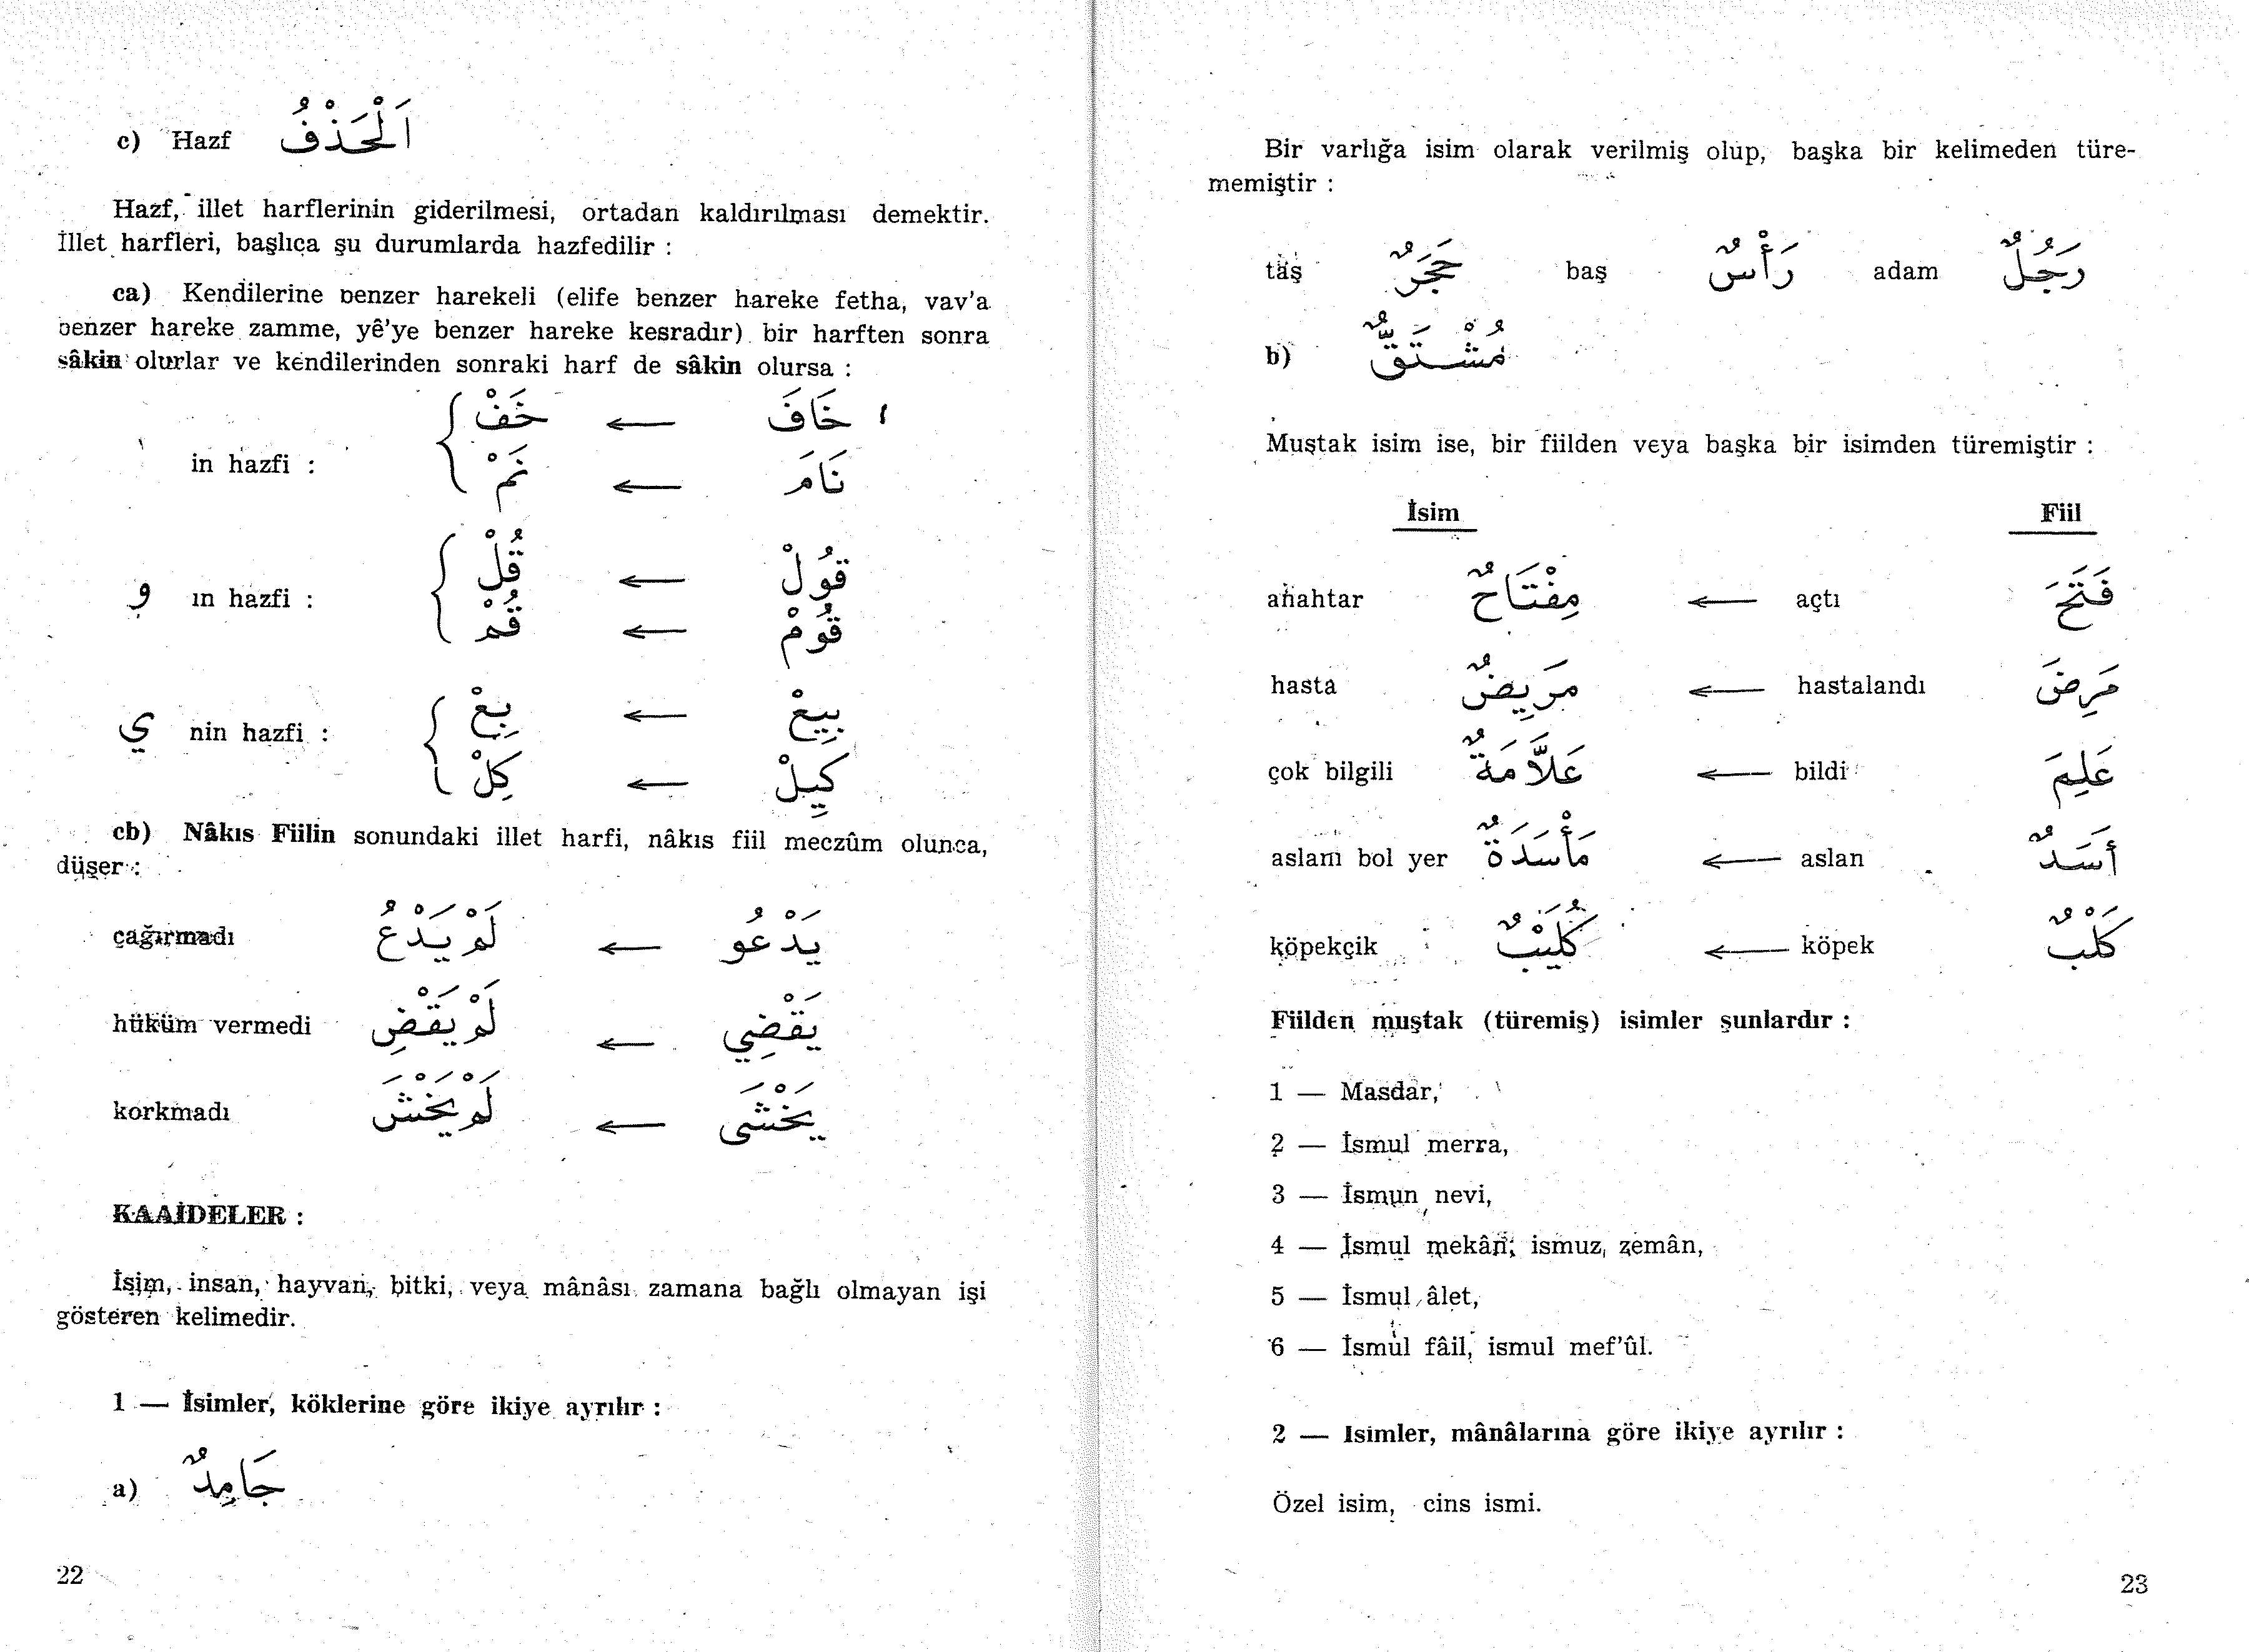 c) Hazf اَلْحَذْفُ
Hazf, illet harflerinin giderilmesi, ortadan kaldırılması demektir.
İllet harfleri, başlıca şu durumlarda hazfedilir :
ca) Kendilerine benzer harekeli (elife benzer hareke fetha, vav'a
benzer hareke zamme, yê'ye benzer hareke kesradır) bir harften sonra
sâkin olurlar ve kendilerinden sonraki harf de sâkin olursa :
خَفْ ← خَافَ ا
in hazfi :
نَمْ ← نَامَ
قُلْ ← قُولْ
و ın hazfi :
قُمْ ← قُومْ
بِعْ ← بِيعْ
ي nin hazfi :
كِلْ ← كِيلْ
cb) Nâkıs Fiilin sonundaki illet harfi, nâkıs fiil meczûm olunca,
düşer :
çağırmadı لَمْ يَدْعُ ← يَدْعُو
hüküm vermedi لَمْ يَقْضِ ← يَقْضِي
korkmadı لَمْ يَخْشَ ← يَخْشَى
KAAİDELER :
İsim, insan, hayvan, bitki, veya mânâsı zamana bağlı olmayan işi
gösteren kelimedir.
1 — İsimler, köklerine göre ikiye ayrılır :
a) جَامِدٌ
22
Bir varlığa isim olarak verilmiş olup, başka bir kelimeden türe-
memiştir :
taş حَجَرٌ baş رَأْسٌ adam رَجُلٌ
b) مُشْتَقٌّ
Muştak isim ise, bir fiilden veya başka bir isimden türemiştir :
İsim Fiil
anahtar مِفْتَاحٌ ← açtı فَتَحَ
hasta مَرِيضٌ ← hastalandı مَرِضَ
çok bilgili عَلاَّمَةٌ ← bildi عَلِمَ
aslanı bol yer مَأْسَدَةٌ ← aslan أَسَدٌ
köpekçik كُلَيْبٌ ← köpek كَلْبٌ
Fiilden muştak (türemiş) isimler şunlardır :
1 — Masdar,
2 — İsmul merra,
3 — İsmun nevi,
4 — İsmul mekân, ismuz zemân,
5 — İsmul âlet,
6 — İsmul fâil, ismul mef'ûl.
2 — İsimler, mânâlarına göre ikiye ayrılır :
Özel isim, cins ismi.
23